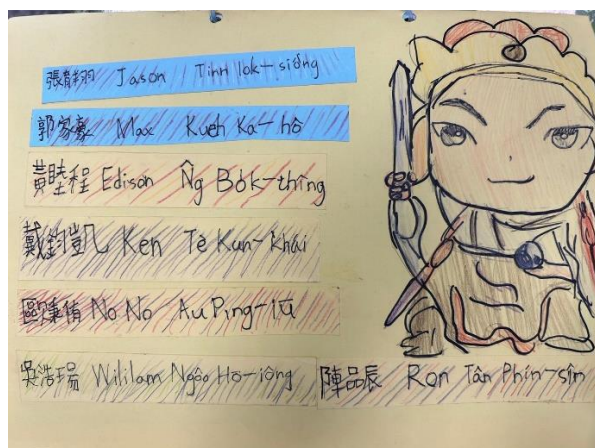 張育翔 Jason Tinn Iok-siông
郭家豪 Max Kueh Ka-hô
黃睦程 Edison N̂g Bo̍k-thîng
戴鈞凱 Ken Tè Kun-khái
歐秉侑 No No Au Píng-iū
吳浩瑒 Wililam Ngôo Hō-iông
陳品辰 Ron Tân Phín-sîn